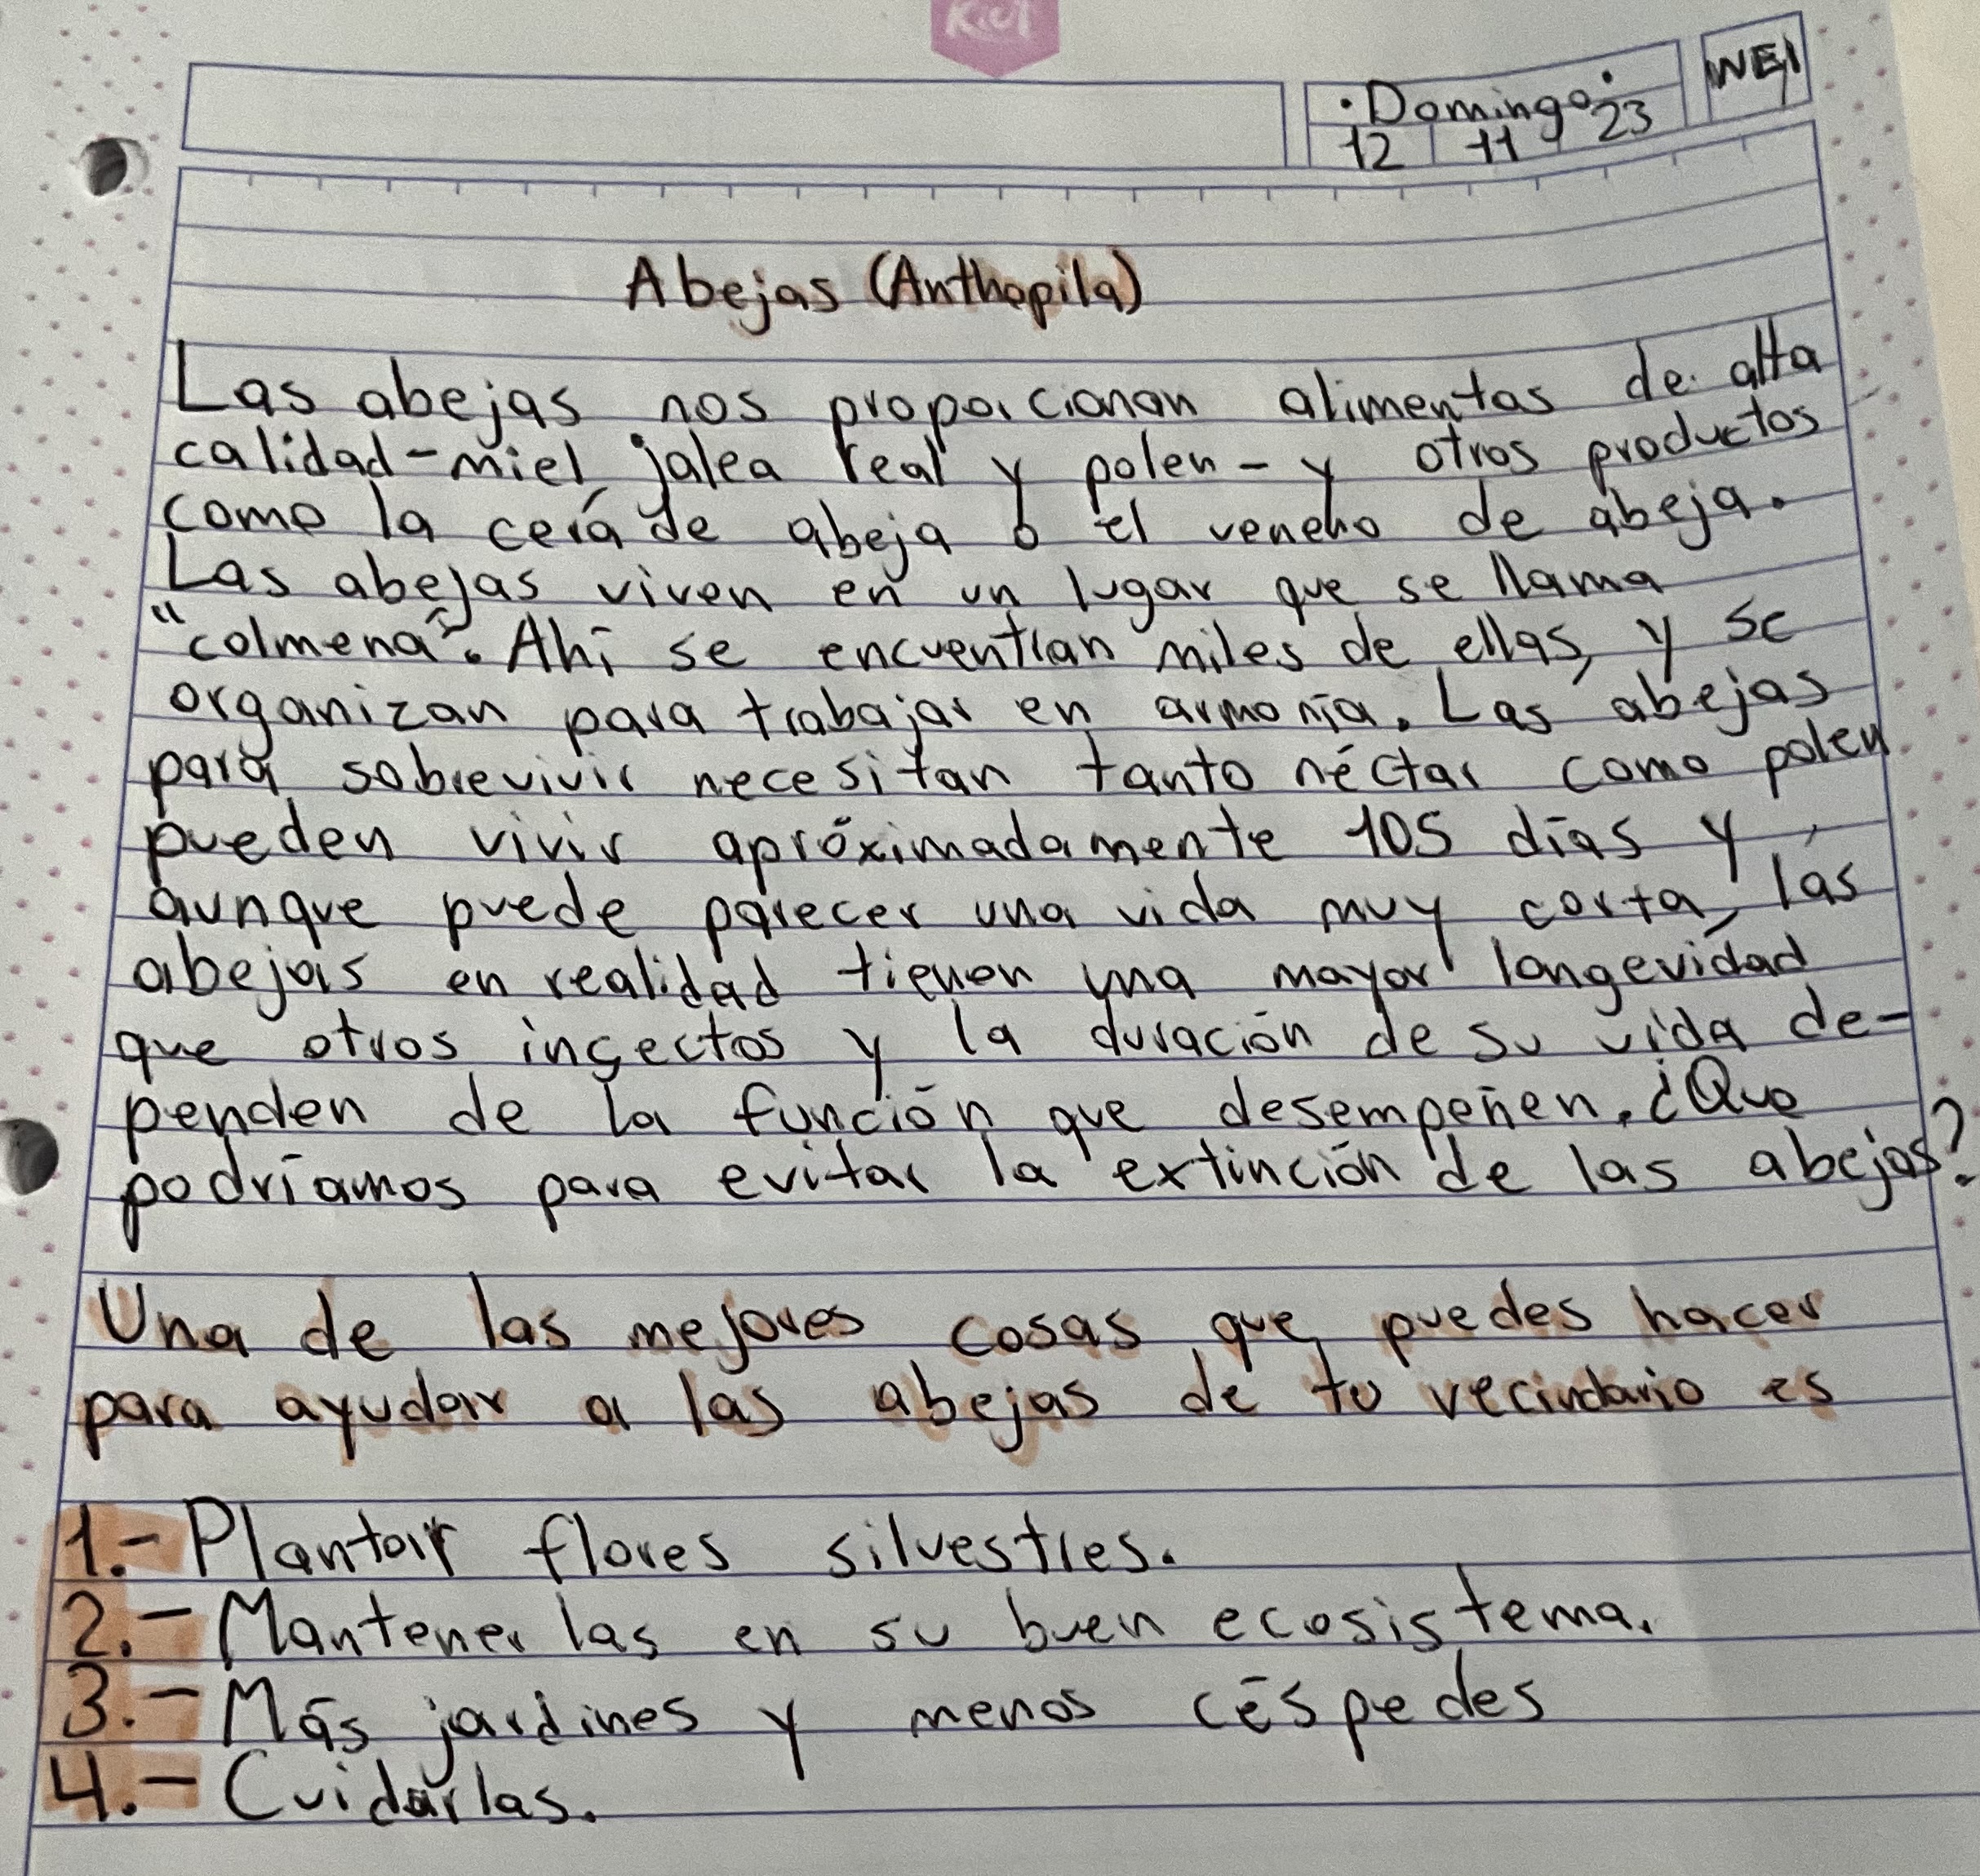 Kiut
·Domingo·
12 11 23
WEI
Abejas (Anthopila)
Las abejas nos proporcionan alimentos de alta
calidad-miel, jalea real y polen- y otros productos
como la cera de abeja o el veneno de abeja.
Las abejas viven en un lugar que se llama
"colmena". Ahí se encuentran miles de ellas, y se
organizan para trabajar en armonía. Las abejas
para sobrevivir necesitan tanto néctar como polen
pueden vivir apróximadamente 105 días y,
aunque puede parecer una vida muy corta, las
abejas en realidad tienen una mayor longevidad
que otros insectos y la duración de su vida de-
penden de la función que desempeñen. ¿Que
podríamos para evitar la extinción de las abejas?
Una de las mejores cosas que puedes hacer
para ayudar a las abejas de tu vecindario es
1.- Plantar flores silvestres.
2.- Mantener las en su buen ecosistema.
3.- Más jardines y menos céspedes
4.- Cuidarlas.